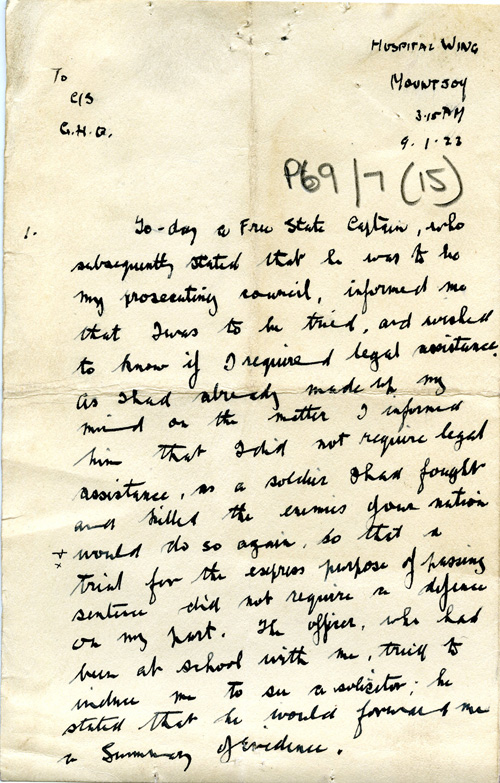 Hospital Wing
Mountjoy
3.15 PM
9.1.23
To
C/S
G.H.Q.
P69/7 (15)
1. To-day a Free State Captain, who
subsequently stated that he was to be
my prosecuting council, informed me
that I was to be tried, and wished
to know if I required legal assistance.
As I had already made up my
mind on the matter I informed
him that I did not require legal
assistance, as a soldier I had fought
and killed the enemies of our nation
+ would do so again, so that a
trial for the express purpose of passing
sentence did not require a defence
on my part. The officer, who had
been at school with me, tried to
induce me to see a solicitor; he
stated that he would forward me
a Summary of Evidence.